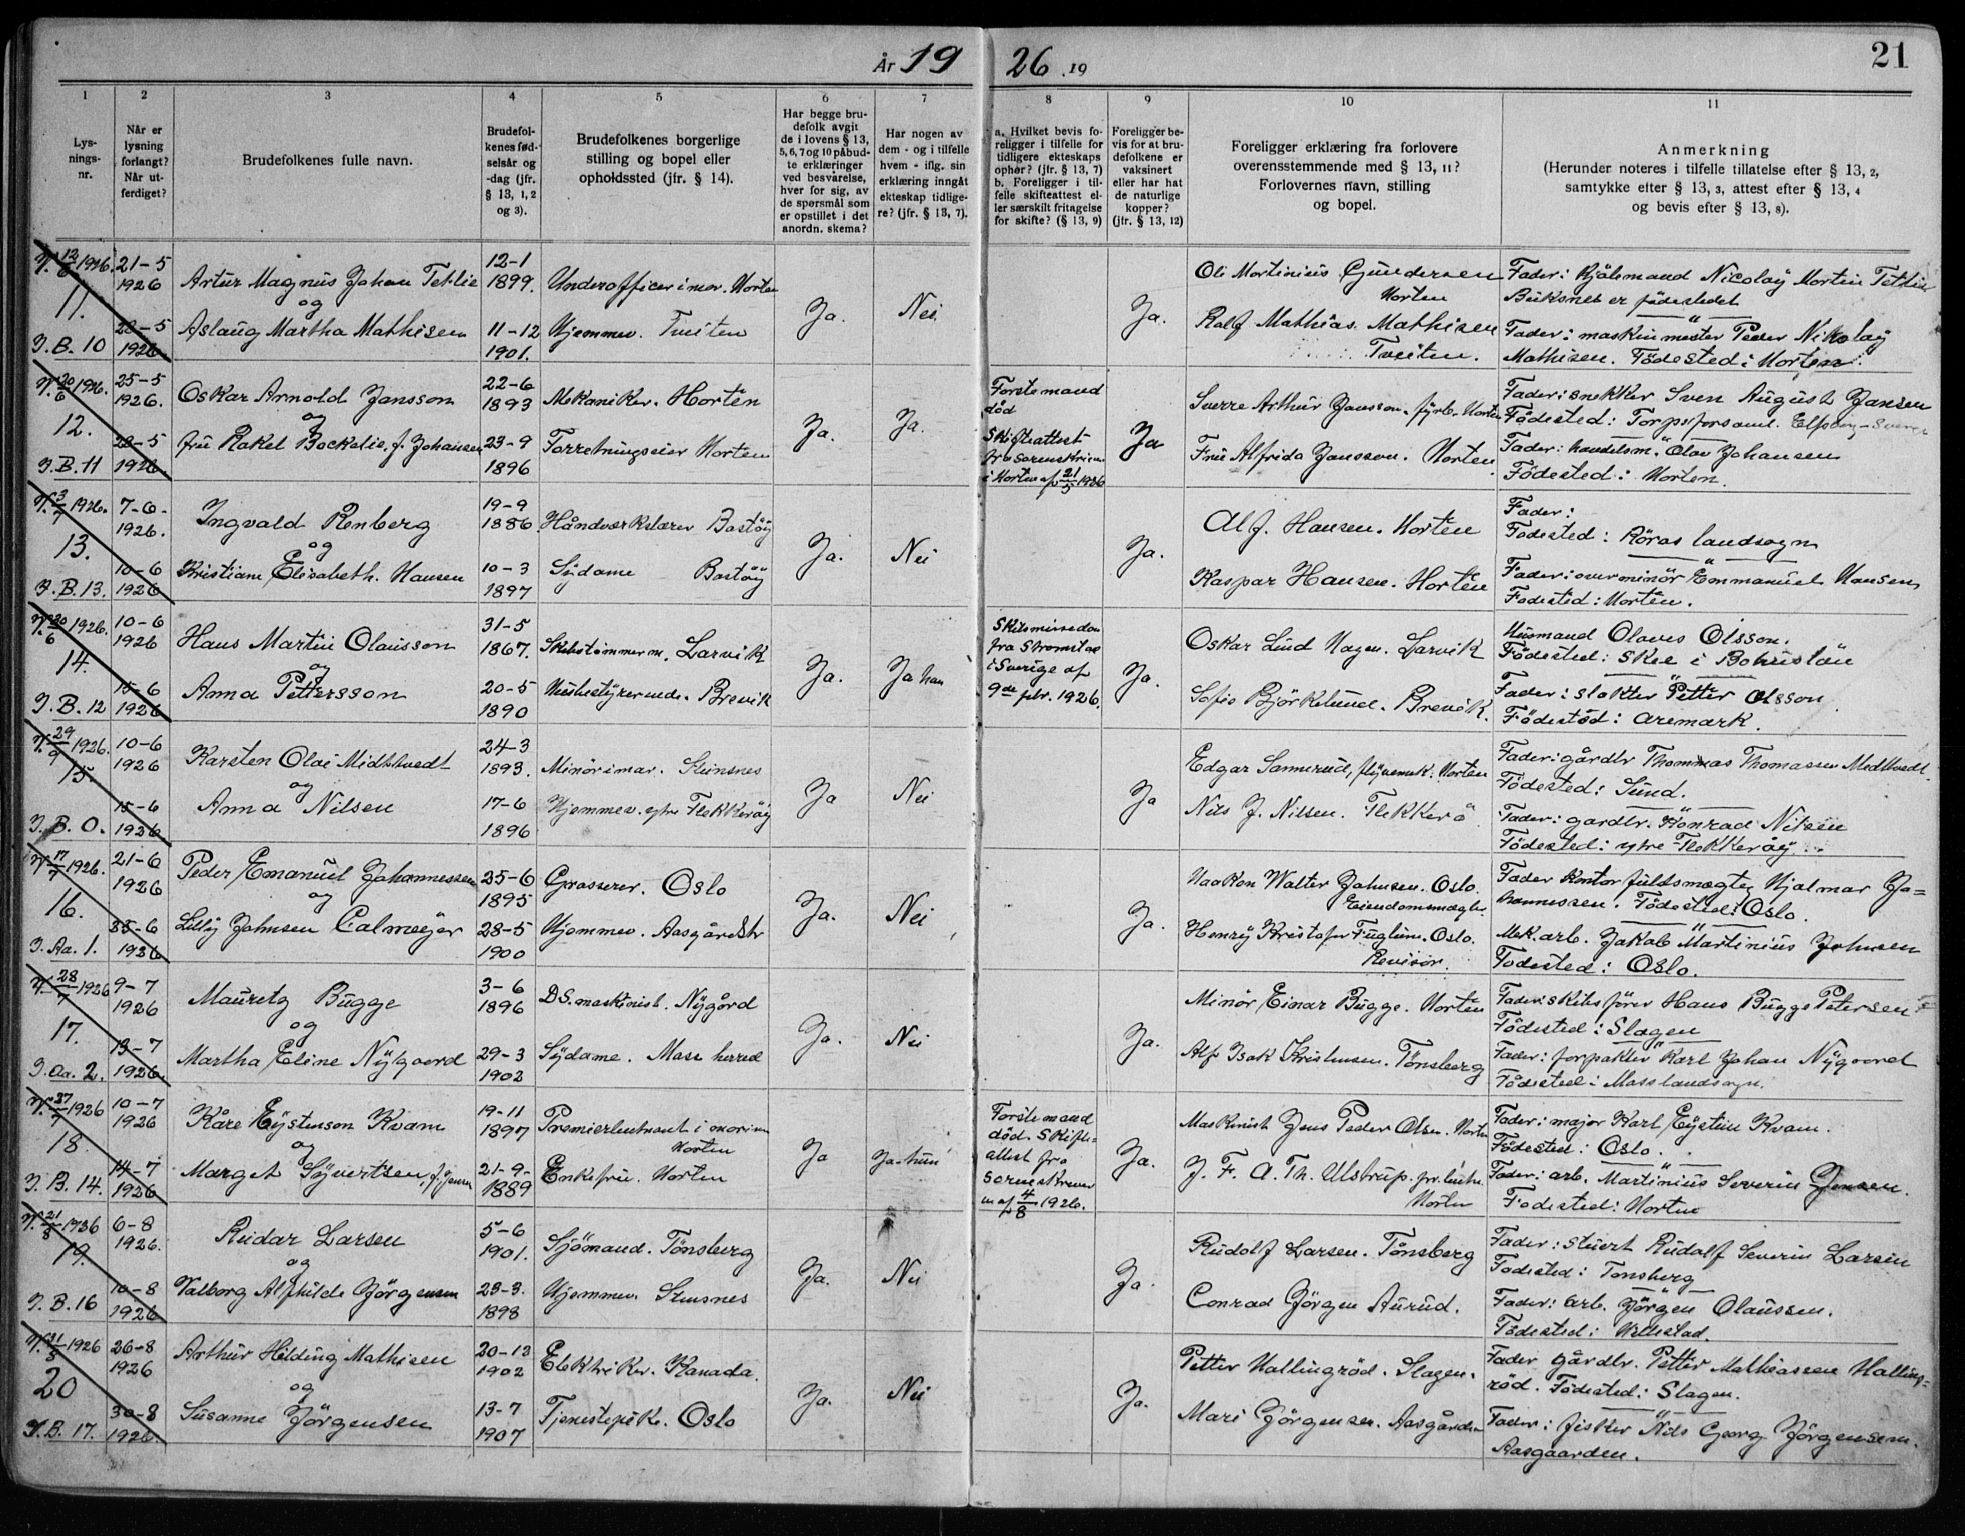 År 19 26 .19
21
1
2
3
4
5
6
7
8
9
10
11
Lys-
nings-
nr.
Når er
lysning
forlangt?
Når ut-
ferdiget?
Brudefolkenes fulle navn.
Brudefol-
kenes fød-
selsår og
-dag (jfr.
§ 13, 1, 2
og 3).
Brudefolkenes borgerlige
stilling og bopel eller
opholdssted (jfr. § 14).
Har begge bru-
defolk avgit
de i lovens § 13,
5, 6, 7 og 10 påbud-
te erklæringer
ved besvarelse,
hver for sig, av
de spørsmål som
er opstillet i det
anordn. skema?
Har nogen av
dem - og i tilfelle
hvem - iflg. sin
erklæring inngåt
ekteskap tidlige-
re? (jfr. § 13, 7).
a. Hvilket bevis fo-
religger i tilfelle for
tidligere ekteskaps
ophør? (jfr. § 13, 7)
b. Foreligger i til-
felle skifteattest el-
ler særskilt fritagelse
for skifte? (§ 13, 9)
Foreligger be-
vis for at bru-
defolkene er
vaksinert
eller har hat
de naturlige
kopper?
(jfr. § 13, 12)
Foreligger erklæring fra forlovere
overensstemmende med § 13, 11?
Forlovernes navn, stilling
og bopel.
Anmerkning
(Herunder noteres i tilfelle tillatelse efter § 13, 2,
samtykke efter § 13, 3, attest efter § 13, 4
og bevis efter § 13, 8).
11.
J.B. 10
21-5
1926
28-5
1926
Artur Magnus Johan Tetlie
og
Aslaug Martha Mathisen
12-1
1899.
11-12
1901.
Underofficer i mar. Horten
Hjemmev. Tveiten
Ja.
Nei
Ja.
Oli Mortinius Gundersen
Horten
Ralf Mathias Mathisen
Tveiten.
Nicolay Mortin Tetlie
Buksnes er födestedet
Fader: maskinmester Peder Nikolay
Mathisen. Födested: Horten.
12.
J.B. 11
25-5
1926.
28-5
1926
Oskar Arnold Jansson
og
fru Rakel Bockelie, f. Johansen
22-6
1893
23-9
1896
Mekaniker. Horten
Forretningseier Horten
Ja.
Ja.
Förste mand
död
Skifteattest
fra Sorenskriveren
i Horten af 21/5 1926
Ja
Sverre Arthur Jansson. fyrb. Horten
Frue Alfrida Jansson. Horten.
Fader: snekker Sven August Jansen
Födested:
Fader: handelsm. Olav Johansen
Födested: Horten.
13.
J.B. 13.
7-6-
1926.
10-6
1926
Ingvald Renberg
og
Kristiane Elisabeth. Hansen
19-9
1886
10-3
1897
Håndverkslærer Bastöy
Sydame Bastöy
Ja.
Nei
Ja.
Alf. Hansen. Horten
Kaspar Hansen. Horten
Fader:
Födested: Röros landsogn
Fader: overminör Emmanuel Hansen
Födested: Horten.
14.
J.B. 12
10-6
1926
15-6
1926
Hans Martin Olausson
og
Anna Pettersson
31-5
1867.
20-5
1890
Skibstömmerm. Larvik
Husbestyrerinde. Brevik
Ja.
Ja han
Skilsmissedom
fra Strömstad
i Sverige af
9de febr. 1926.
Ja.
Oskar Lind Hagen. Larvik
Sofie Björkelund. Brevik.
Husmand Olaves Olsson.
Födested: Skee i Bohuslän
Fader: slakter Petter Olsson
Födested: Aremark.
15.
J.B. 0.
10-6
1926
15-6
1926
Karsten Olai Midtbvedt
og
Anna Nilsen
24-3
1893.
17-6
1896
Minör i mar. Steinsnes
Hjemmev. ytre Flekkeröy
Ja
Nei
Ja
Edgar Sannerud, Horten
Nils J. Nilsen. Flekkerö
Fader: gårdbr. Thommas Thomassen
Födested: Sund.
Fader: gardbr. Konrad Nilsen
Födested: ytre Flekkeröy
16.
J. Aa. 1.
21-6
1926
25-6
1926
Peder Emanuel Johannessen
og
Lilly Johnsen Calmeyer
25-6
1895
28-5
1900
Grosserer. Oslo
Hjemmev. Aasgårdstr
Ja.
Nei
Ja.
Haakon Walter Johnsen. Oslo.
Eiendomsmægler.
Henry Kristofer Fuglum. Oslo.
Revisor.
Fader Kontorfuldmægtig Hjalmar Jo=
hannessen. Födested: Oslo.
Mek. arb. Jakob Martinius Johnsen
Födested: Oslo.
17.
J. Aa. 2.
9-7
1926
13-7
1926.
Mauretz Bugge
og
Martha Eline Nygaard
3-6
1896
29-3
1902
D.S. maskinist. Nygård
Sydame. Moss herred
Ja.
Nei
Ja.
Minör Einar Bugge. Horten
Alf Isak Kristensen. Tönsberg
Fader: skibsförer Hans Bugge Petersen
Födested: Slagen
Fader: forpakter Karl Johan Nygaard
Födested: Moss landsogn.
18.
J.B. 14.
10-7
1926
14-7
1926
Kåre Eystenson Kvam
og
Marget Syvertsen, f. Jensen
19-11
1897
21-9-
1889
Premierleutnant i marinen
Horten
Enkefrue. Horten
Ja
Ja hun
Förste mand
död. Skifte=
attest fra
Sorenskriver
en af 4/8 1926.
Ja.
Maskinist Jens Peder Olsen. Horten
J. Fr. A. Th. Ulstrup.
Horten
Fader: major Karl Eystein Kvam.
Födested: Oslo.
Fader: arb. Martinius Severin Jensen.
Födested: Horten
19.
J.B. 16
6-8
1926.
10-8
1926
Reidar Larsen
og
Valborg Alfhilde Jörgensen
5-6
1901.
23-3.
1898
Sjömand. Tönsberg
Hjemmev. Steinsnes
Ja.
Nei
Ja.
Rudolf Larsen. Tönsberg
Conrad Jörgen Aurud.
Fader: stuert Rudolf Severin Larsen
Födested: Tonsberg
Fader: arb. Jörgen Olaussen.
Födested: Hillestad.
20
J.B. 17.
26-8
1926
30-8
1926.
Arthur Hilding Mathisen
og
Susanne Jörgensen
20-12
1902
13-7
1907
Elektriker. Kanada.
Tjenestepike. Oslo
Ja.
Nei
Ja.
Petter Hallingröd. Slagen.
Mari Jörgensen. Aasgården
Fader gårdbr. Petter Mathiassen Halling=
röd. Födested: Slagen.
Fader: fisker Nils Georg Jörgensen.
Aasgaarden.